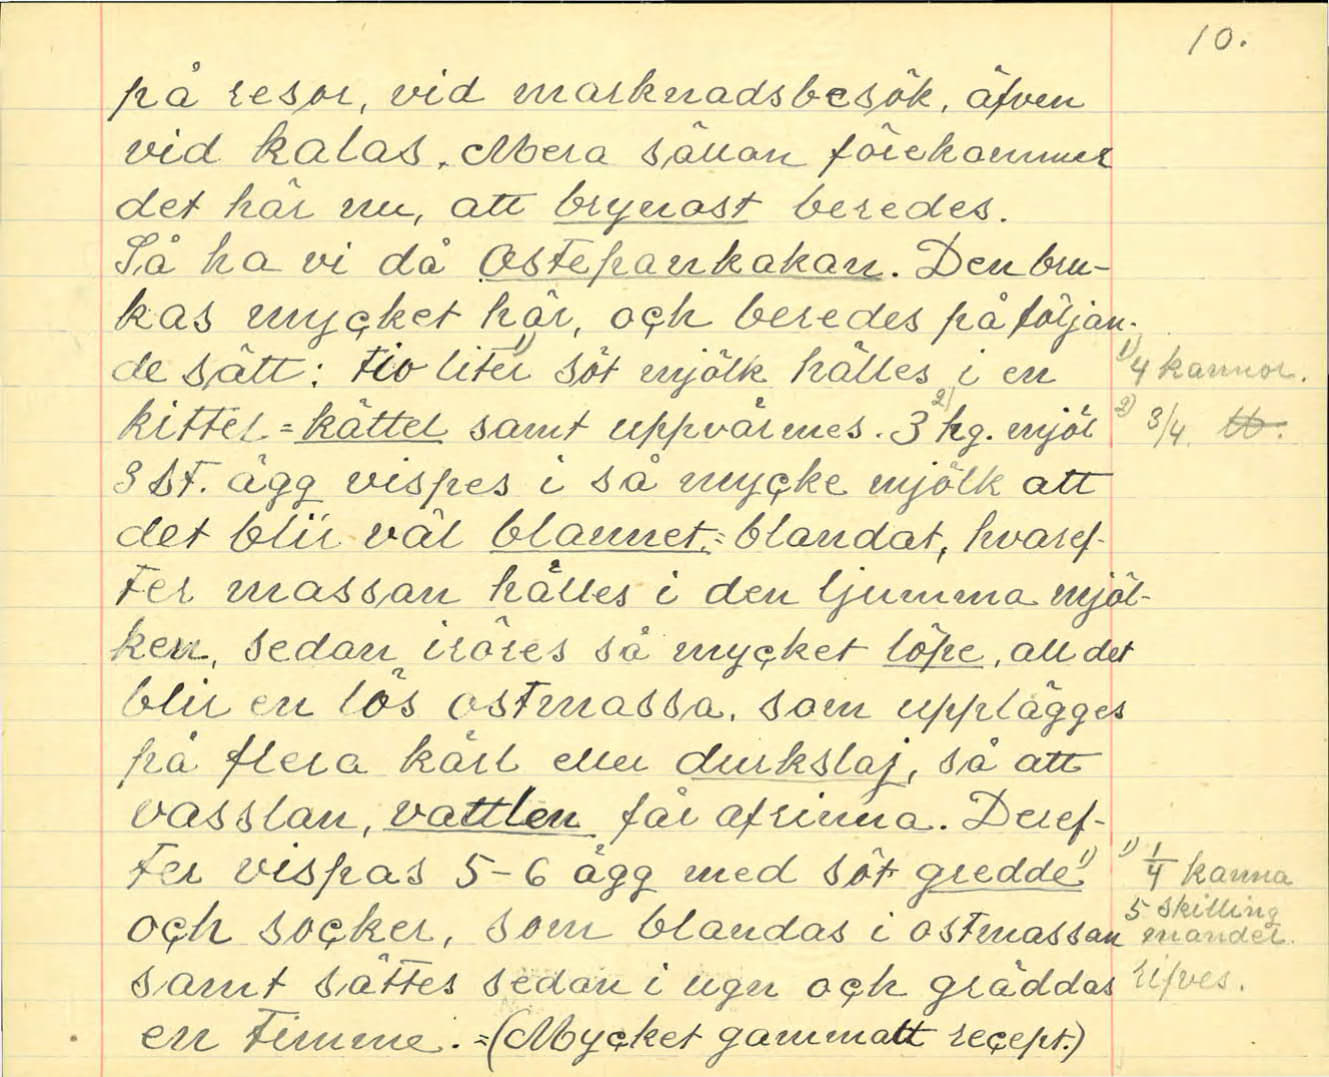 10.
på resor, vid marknadsbesök, äfven
vid kalas. Mera sällan förekommer
det här nu, att brynost beredes.
Så ha vi då Ostepankakan. Den bru-
kas mycket här, och beredes på följan-
de sätt: Tio liter 1) söt mjölk hälles i en
1) 4 kannor.
kittel = kättel samt uppvärmes. 3 2) hg. mjöl
2) 3/4 lb.
3 st. ägg vispes i så mycke mjölk att
det blir väl blannet = blandat, hvaref-
ter massan hålles i den ljumma mjöl-
ken, sedan iröres så mycket löpe, att det
blir en lös ostmassa, som upplägges
på flera kärl eller durkslaj, så att
vasslan, vattlen får afrinna. Deref-
ter vispas 5-6 ägg med söt gredde 1)
1) 1/4 kanna
och socker, som blandas i ostmassan
5 skilling
mandel
samt sättes sedan i ugn och gräddas
rifves.
en timme. = (Mycket gammalt recept.)